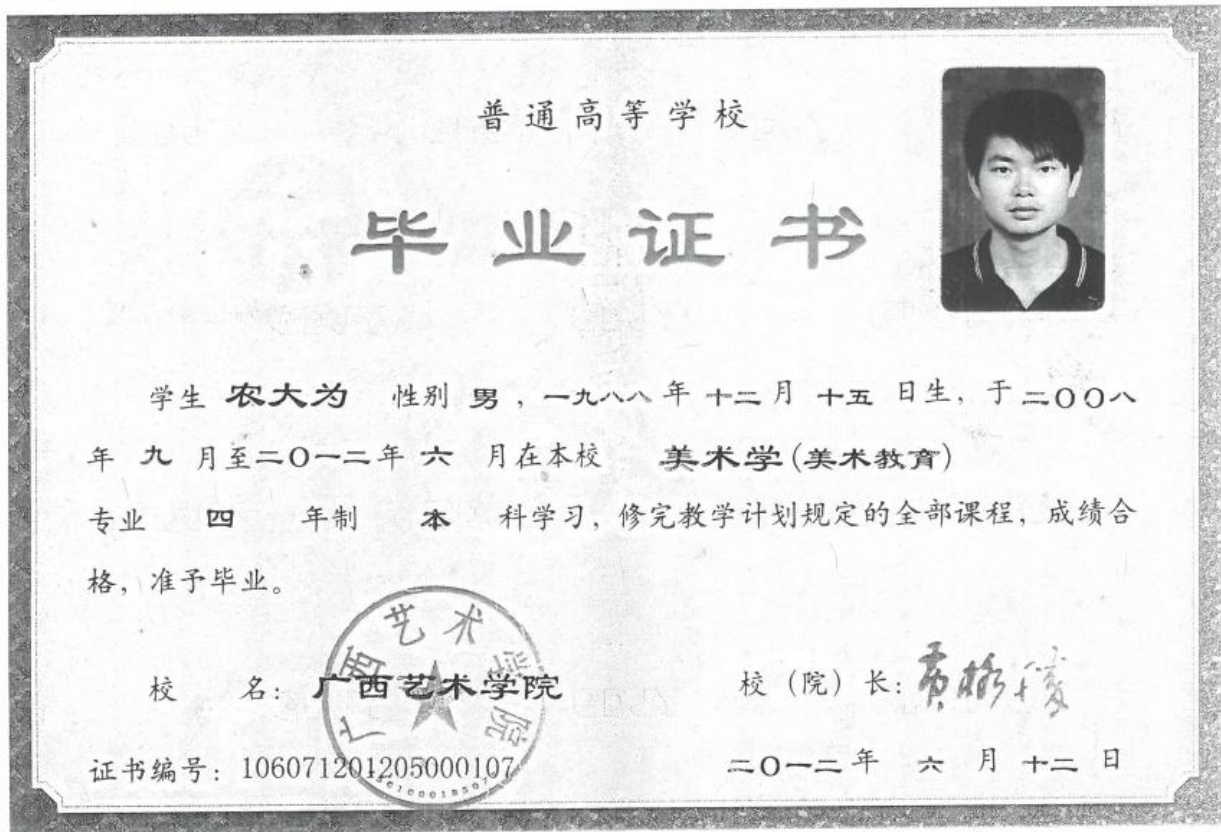 普通高等学校
毕业证书
学生 农大为 性别 男，一九八八年 十二月 十五 日生，于二〇〇八
年 九 月至二〇一二年 六 月在本校 美术学(美术教育)
专业 四 年制 本 科学习，修完教学计划规定的全部课程，成绩合
格，准予毕业。
广西艺术学院
校 名：广西艺术学院 校（院）长：
证书编号：106071201205000107 二〇一二年 六 月 十二 日